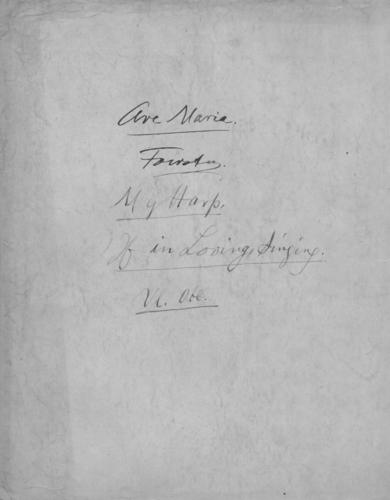 Ave Maria.
My Harp.
If in Loving, Singing.
Vl. Obl.